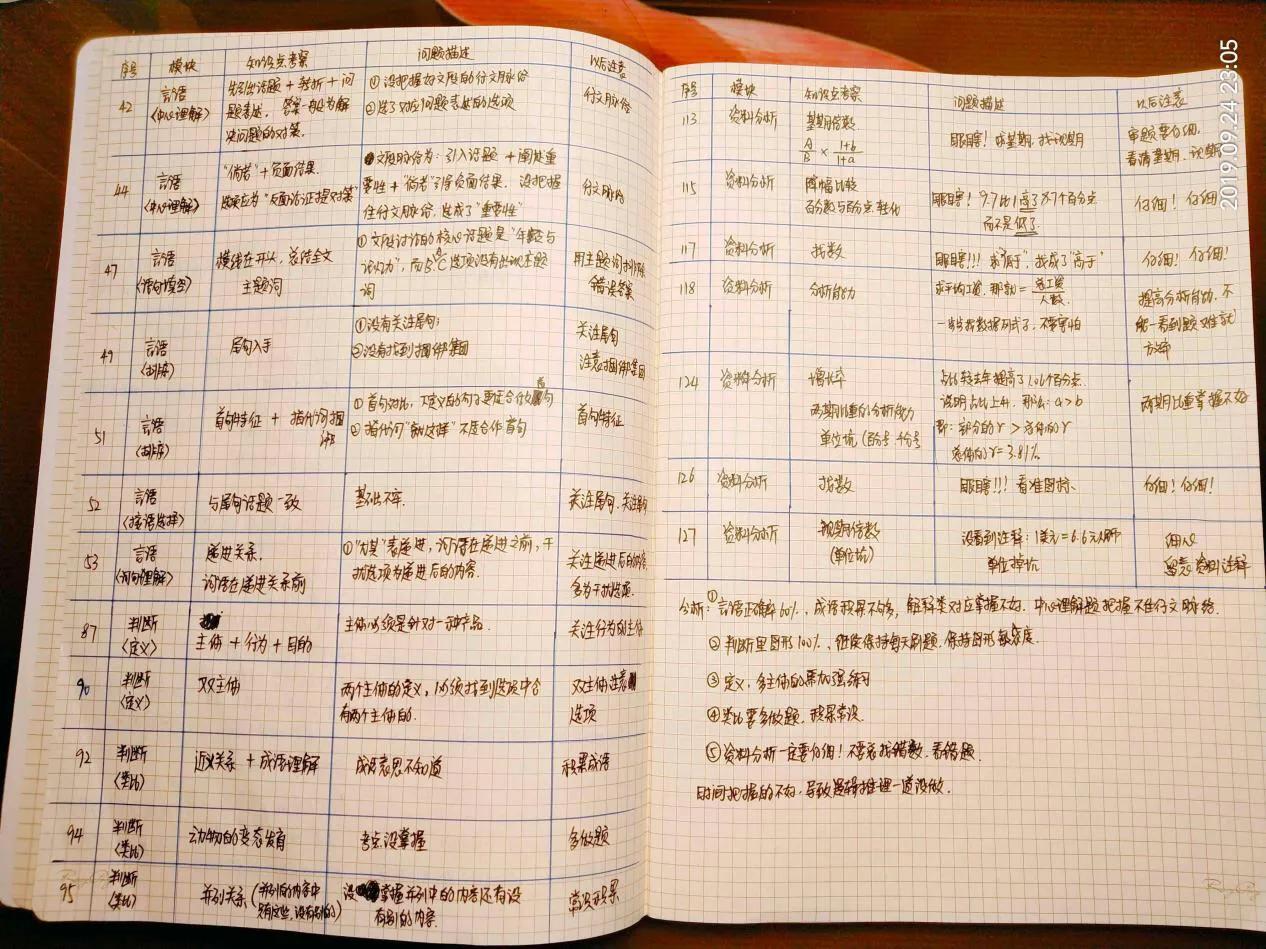 序号 模块 知识点考察 问题描述 以后注意
42 言语 先引出话题+转折+问 ①没把握好文段的行文脉络 行文脉络
(中心理解) 题表述,答案一般为解 ②选了对应问题表述的选项
决问题的对策。
44 言语 "倘若"+负面结果. 文段脉络为:引入话题+阐述重 行文脉络
(中心理解) 选项应为"反面论证提对策" 要性+"倘若"引导负面结果. 没把握
住行文脉络, 选成了"重要性"
47 言语 横线在开头,总结全文 ①文段讨论的核心话题是"年龄与 用主题词排除
(语句填空) 主题词 ,而B、C选项没有出现主题 错误答案
词
49 言语 尾句入手 ①没有关注尾句; 关注尾句
(排序) ②没有找到捆绑集团 注意捆绑集团
51 言语 首句特征+指代词捆 ①首句对比,下定义的句子更适合做首句 首句特征
(排序) 绑 ②指代词"这样"不适合作首句
52 言语 与尾句话题一致 基础不牢. 关注尾句.
(接语选择)
53 言语 递进关系. ①"尤其"表递进,词语在递进之前,干 关注递进后的内容
(词句理解) 词语在递进关系前 扰选项为递进后的内容. 多为干扰选项.
87 判断 主体+行为+目的 主体必须是针对一种产品. 关注行为的主体
(定义)
90 判断 双主体 两个主体的定义,必须找到选项中含 双主体注意
(定义) 有两个主体的. 选项
92 判断 近义关系+成语理解 成语意思不知道 积累成语
(类比)
94 判断 动物的变态发育 考点没掌握 多做题
(类比)
95 判断 并列关系(并列的内容中 没掌握并列中的内容还有没 常识积累
(类比) 只有这些,没有别的) 有别的内容.
序号 模块 知识点考察 问题描述 以后注意
113 资料分析 基期倍数. 眼瞎!求基期,找现期 审题要仔细,
A/B × 1+b/1+a 看清基期、现期
115 资料分析 降幅比较 眼瞎!9.7比1高了8.7个百分点 仔细!仔细
百分数与百分点转化 而不是低了.
117 资料分析 找数 眼瞎!!!求"低于",找成了"高于" 仔细!仔细!
118 资料分析 分析能力 求平均工资,那就=总工资/人数. 提高分析能力,不
一步步找数据列式子,不要害怕 能一看到题难就
放弃
124 资料分析 增长率 占比较去年提高了1.06个百分点. 两期比重掌握不好
两期比重的分析能力 说明占比上升,那么:a>b
单位坑(百分号、千分号 即:部分的r>总体的r
总体的r=3.81%.
126 资料分析 找数 眼瞎!!!看准图标. 仔细!仔细!
127 资料分析 现期倍数 没看到注释:1美元=6.6元人民币 细心
(单位坑) 单位掉坑 留意资料注释
分析:①言语正确率60%,成语积累不够多,解释类对应掌握不好.中心理解题把握不住行文脉络.
②判断里图形100%,继续保持每天刷题.保持图形敏感度.
③定义,多主体的要加强练习
④类比要多做题,积累常识.
⑤资料分析一定要仔细!不要总找错数,看错题.
时间把握的不好,导致逻辑推理一道没做.
2019.09.24 23:05